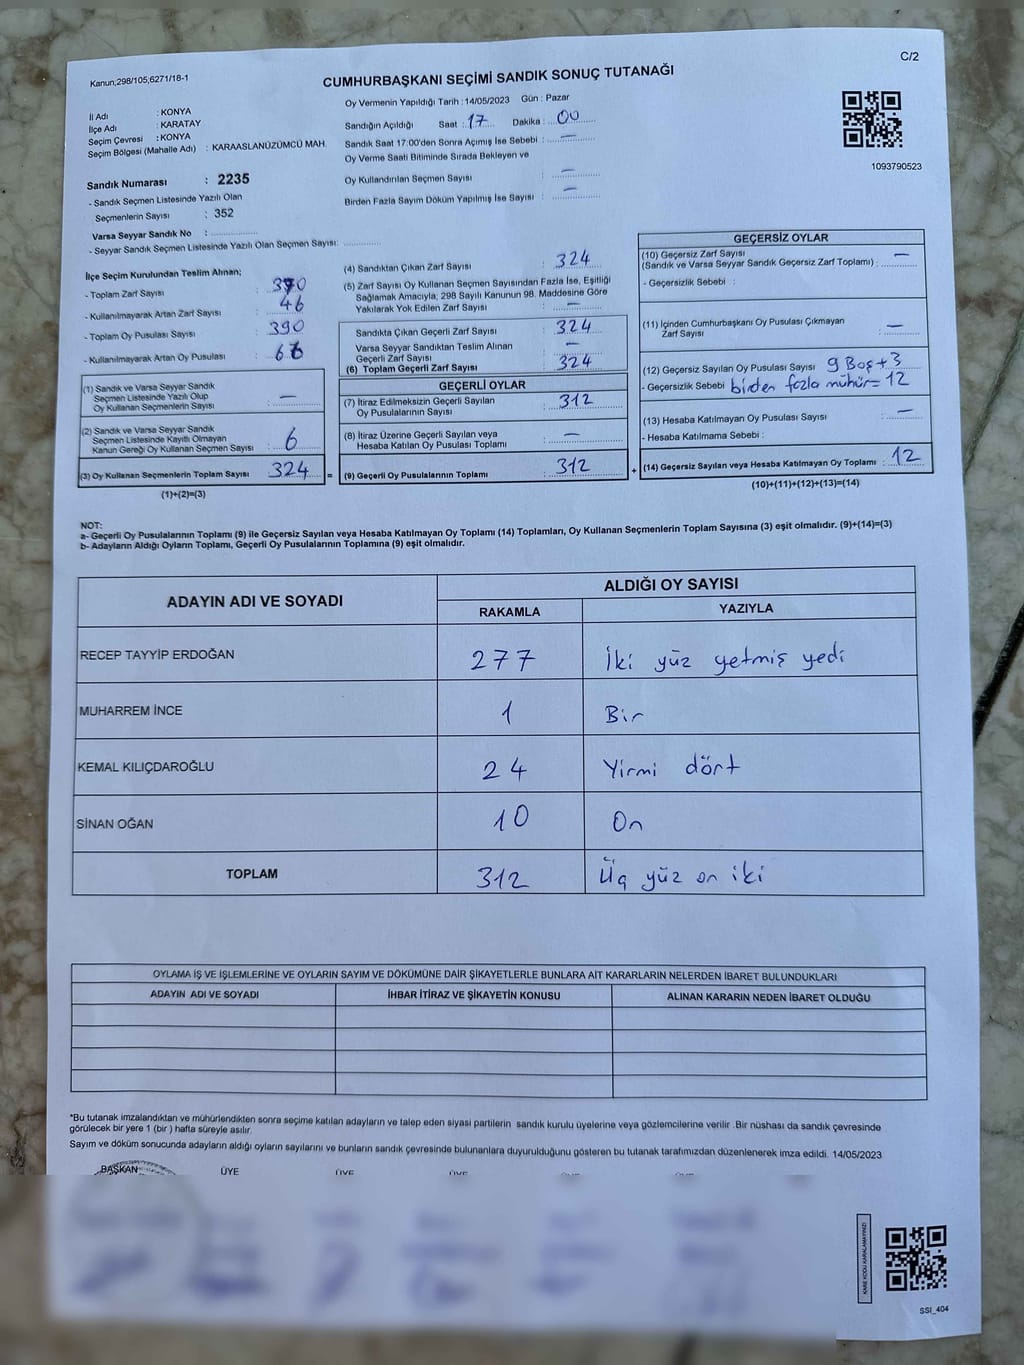 C/2
Kanun;298/105,6271/18-1
CUMHURBAŞKANI SEÇİMİ SANDIK SONUÇ TUTANAĞI
İl Adı : KONYA
İlçe Adı : KARATAY
Seçim Çevresi : KONYA
Seçim Bölgesi (Mahalle Adı) : KARAASLANÜZÜMCÜ MAH.
Sandık Numarası : 2235
- Sandık Seçmen Listesinde Yazılı Olan
Seçmenlerin Sayısı : 352
Varsa Seyyar Sandık No :
- Seyyar Sandık Seçmen Listesinde Yazılı Olan Seçmen Sayısı:
Oy Vermenin Yapıldığı Tarih : 14/05/2023 Gün : Pazar
Sandığın Açıldığı Saat : 17 Dakika : 00
Sandık Saat 17:00'den Sonra Açımış İse Sebebi : —
Oy Verme Saati Bitiminde Sırada Bekleyen ve
Oy Kullandırılan Seçmen Sayısı : —
Birden Fazla Sayım Döküm Yapılmış İse Sayısı : —
1093790523
İlçe Seçim Kurulundan Teslim Alınan;
- Toplam Zarf Sayısı : 370
- Kullanılmayarak Artan Zarf Sayısı : 46
- Toplam Oy Pusulası Sayısı : 390
- Kullanılmayarak Artan Oy Pusulası : 66
(1) Sandık ve Varsa Seyyar Sandık
Seçmen Listesinde Yazılı Olup
Oy Kullanan Seçmenlerin Sayısı : —
(2) Sandık ve Varsa Seyyar Sandık
Seçmen Listesinde Kayıtlı Olmayan
Kanun Gereği Oy Kullanan Seçmen Sayısı : 6
(3) Oy Kullanan Seçmenlerin Toplam Sayısı 324 =
(1)+(2)=(3)
(4) Sandıktan Çıkan Zarf Sayısı : 324
(5) Zarf Sayısı Oy Kullanan Seçmen Sayısından Fazla İse, Eşitliği
Sağlamak Amacıyla, 298 Sayılı Kanunun 98. Maddesine Göre
Yakılarak Yok Edilen Zarf Sayısı : —
Sandıkta Çıkan Geçerli Zarf Sayısı : 324
Varsa Seyyar Sandıktan Teslim Alınan
Geçerli Zarf Sayısı : —
(6) Toplam Geçerli Zarf Sayısı : 324
GEÇERLİ OYLAR
(7) İtiraz Edilmeksizin Geçerli Sayılan
Oy Pusulalarının Sayısı : 312
(8) İtiraz Üzerine Geçerli Sayılan veya
Hesaba Katılan Oy Pusulası Toplamı : —
(9) Geçerli Oy Pusulalarının Toplamı : 312 +
GEÇERSİZ OYLAR
(10) Geçersiz Zarf Sayısı
(Sandık ve Varsa Seyyar Sandık Geçersiz Zarf Toplamı) : —
- Geçersizlik Sebebi :
(11) İçinden Cumhurbaşkanı Oy Pusulası Çıkmayan
Zarf Sayısı : —
(12) Geçersiz Sayılan Oy Pusulası Sayısı 9 Boş + 3
- Geçersizlik Sebebi birden fazla mühür = 12
(13) Hesaba Katılmayan Oy Pusulası Sayısı : —
- Hesaba Katılmama Sebebi :
(14) Geçersiz Sayılan veya Hesaba Katılmayan Oy Toplamı : 12
(10)+(11)+(12)+(13)=(14)
NOT:
a- Geçerli Oy Pusulalarının Toplamı (9) ile Geçersiz Sayılan veya Hesaba Katılmayan Oy Toplamı (14) Toplamları, Oy Kullanan Seçmenlerin Toplam Sayısına (3) eşit olmalıdır. (9)+(14)=(3)
b- Adayların Aldığı Oyların Toplamı, Geçerli Oy Pusulalarının Toplamına (9) eşit olmalıdır.
ADAYIN ADI VE SOYADI ALDIĞI OY SAYISI
RAKAMLA YAZIYLA
RECEP TAYYİP ERDOĞAN 277 İki yüz yetmiş yedi
MUHARREM İNCE 1 Bir
KEMAL KILIÇDAROĞLU 24 Yirmi dört
SİNAN OĞAN 10 On
TOPLAM 312 Üç yüz on iki
OYLAMA İŞ VE İŞLEMLERİNE VE OYLARIN SAYIM VE DÖKÜMÜNE DAİR ŞİKAYETLERLE BUNLARA AİT KARARLARIN NELERDEN İBARET BULUNDUKLARI
ADAYIN ADI VE SOYADI İHBAR İTİRAZ VE ŞİKAYETİN KONUSU ALINAN KARARIN NEDEN İBARET OLDUĞU
*Bu tutanak imzalandıktan ve mühürlendikten sonra seçime katılan adayların ve talep eden siyasi partilerin sandık kurulu üyelerine veya gözlemcilerine verilir .Bir nüshası da sandık çevresinde
görülecek bir yere 1 (bir ) hafta süreyle asılır.
Sayım ve döküm sonucunda adayların aldığı oyların sayılarını ve bunların sandık çevresinde bulunanlara duyurulduğunu gösteren bu tutanak tarafımızdan düzenlenerek imza edildi. 14/05/2023
BAŞKAN ÜYE ÜYE ÜYE
KARE KODU KARALAMAYINIZ!
SSI_404